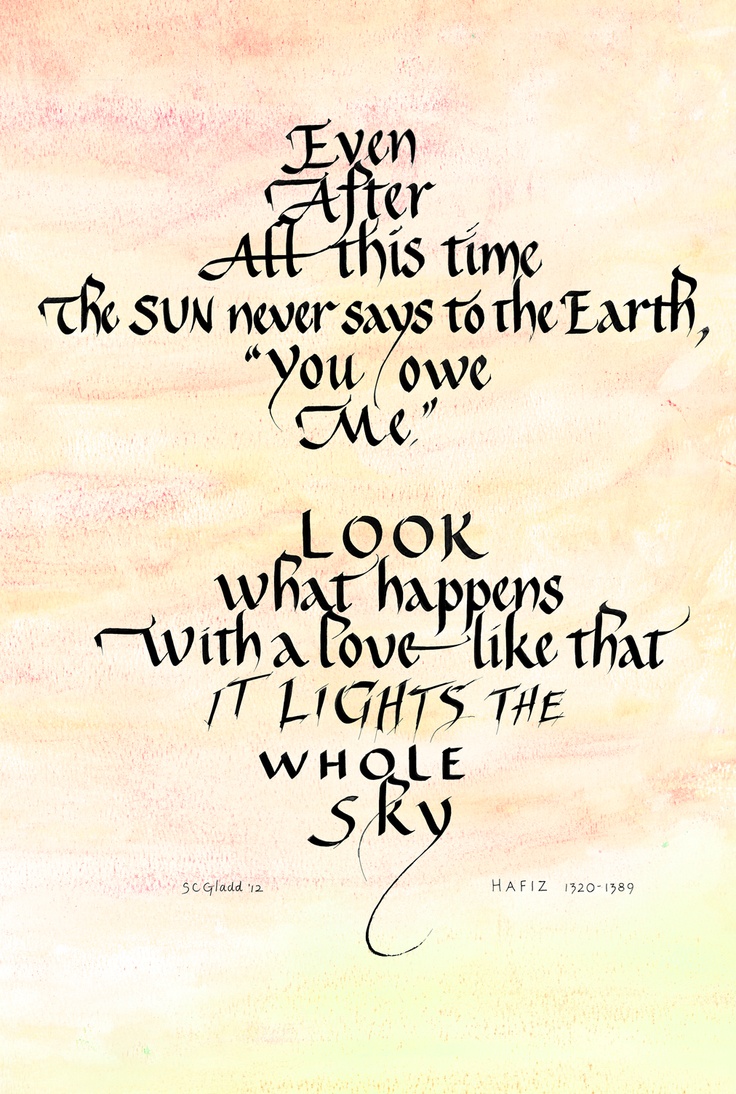 Even
After
All this time
The SUN never says to the Earth,
"You owe
Me."
LOOK
what happens
With a love like that
IT LIGHTS THE
WHOLE
Sky
SCGladd '12
HAFIZ 1320-1389